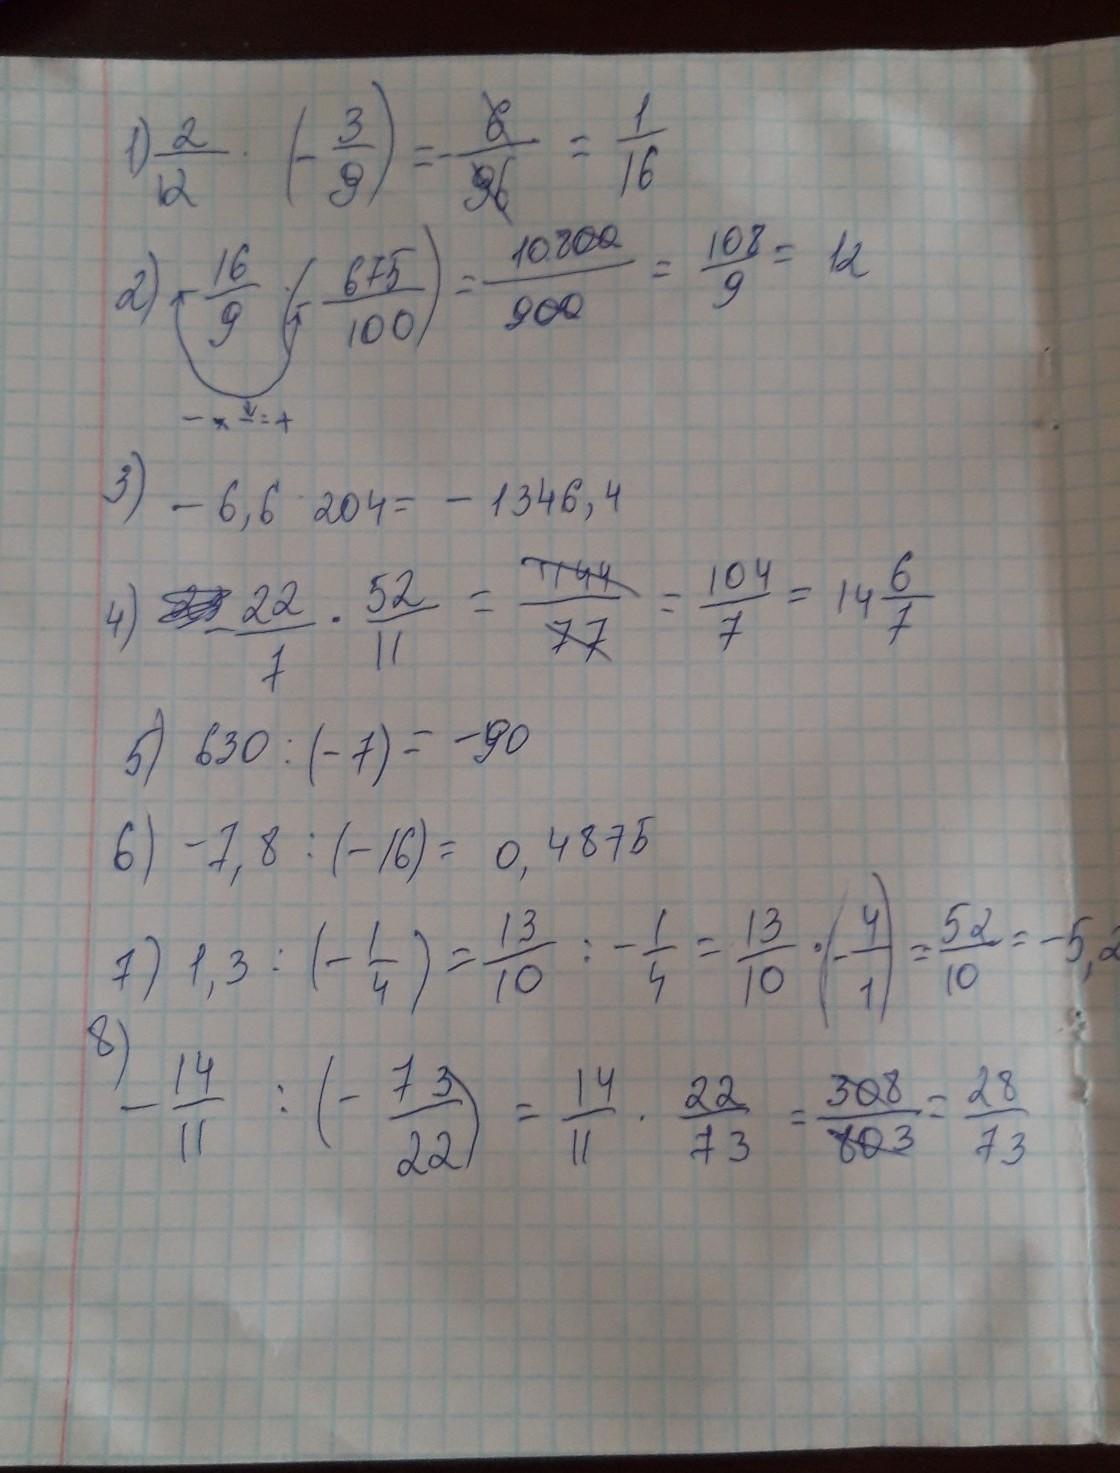 1) 2/12 · (- 3/9) = - 6/96 = 1/16
2) - 16/9 · (- 675/100) = 10800/900 = 108/9 = 12
- × - = +
3) - 6,6 · 204 = - 1346,4
4) - 22/7 · 52/11 = 1144/77 = 104/7 = 14 6/7
5) 630 : (- 7) = - 90
6) - 7,8 : (- 16) = 0,4875
7) 1,3 : (- 1/4) = 13/10 : - 1/4 = 13/10 · (- 4/1) = 52/10 = - 5,2
8) - 14/11 : (- 73/22) = 14/11 · 22/73 = 308/803 = 28/73